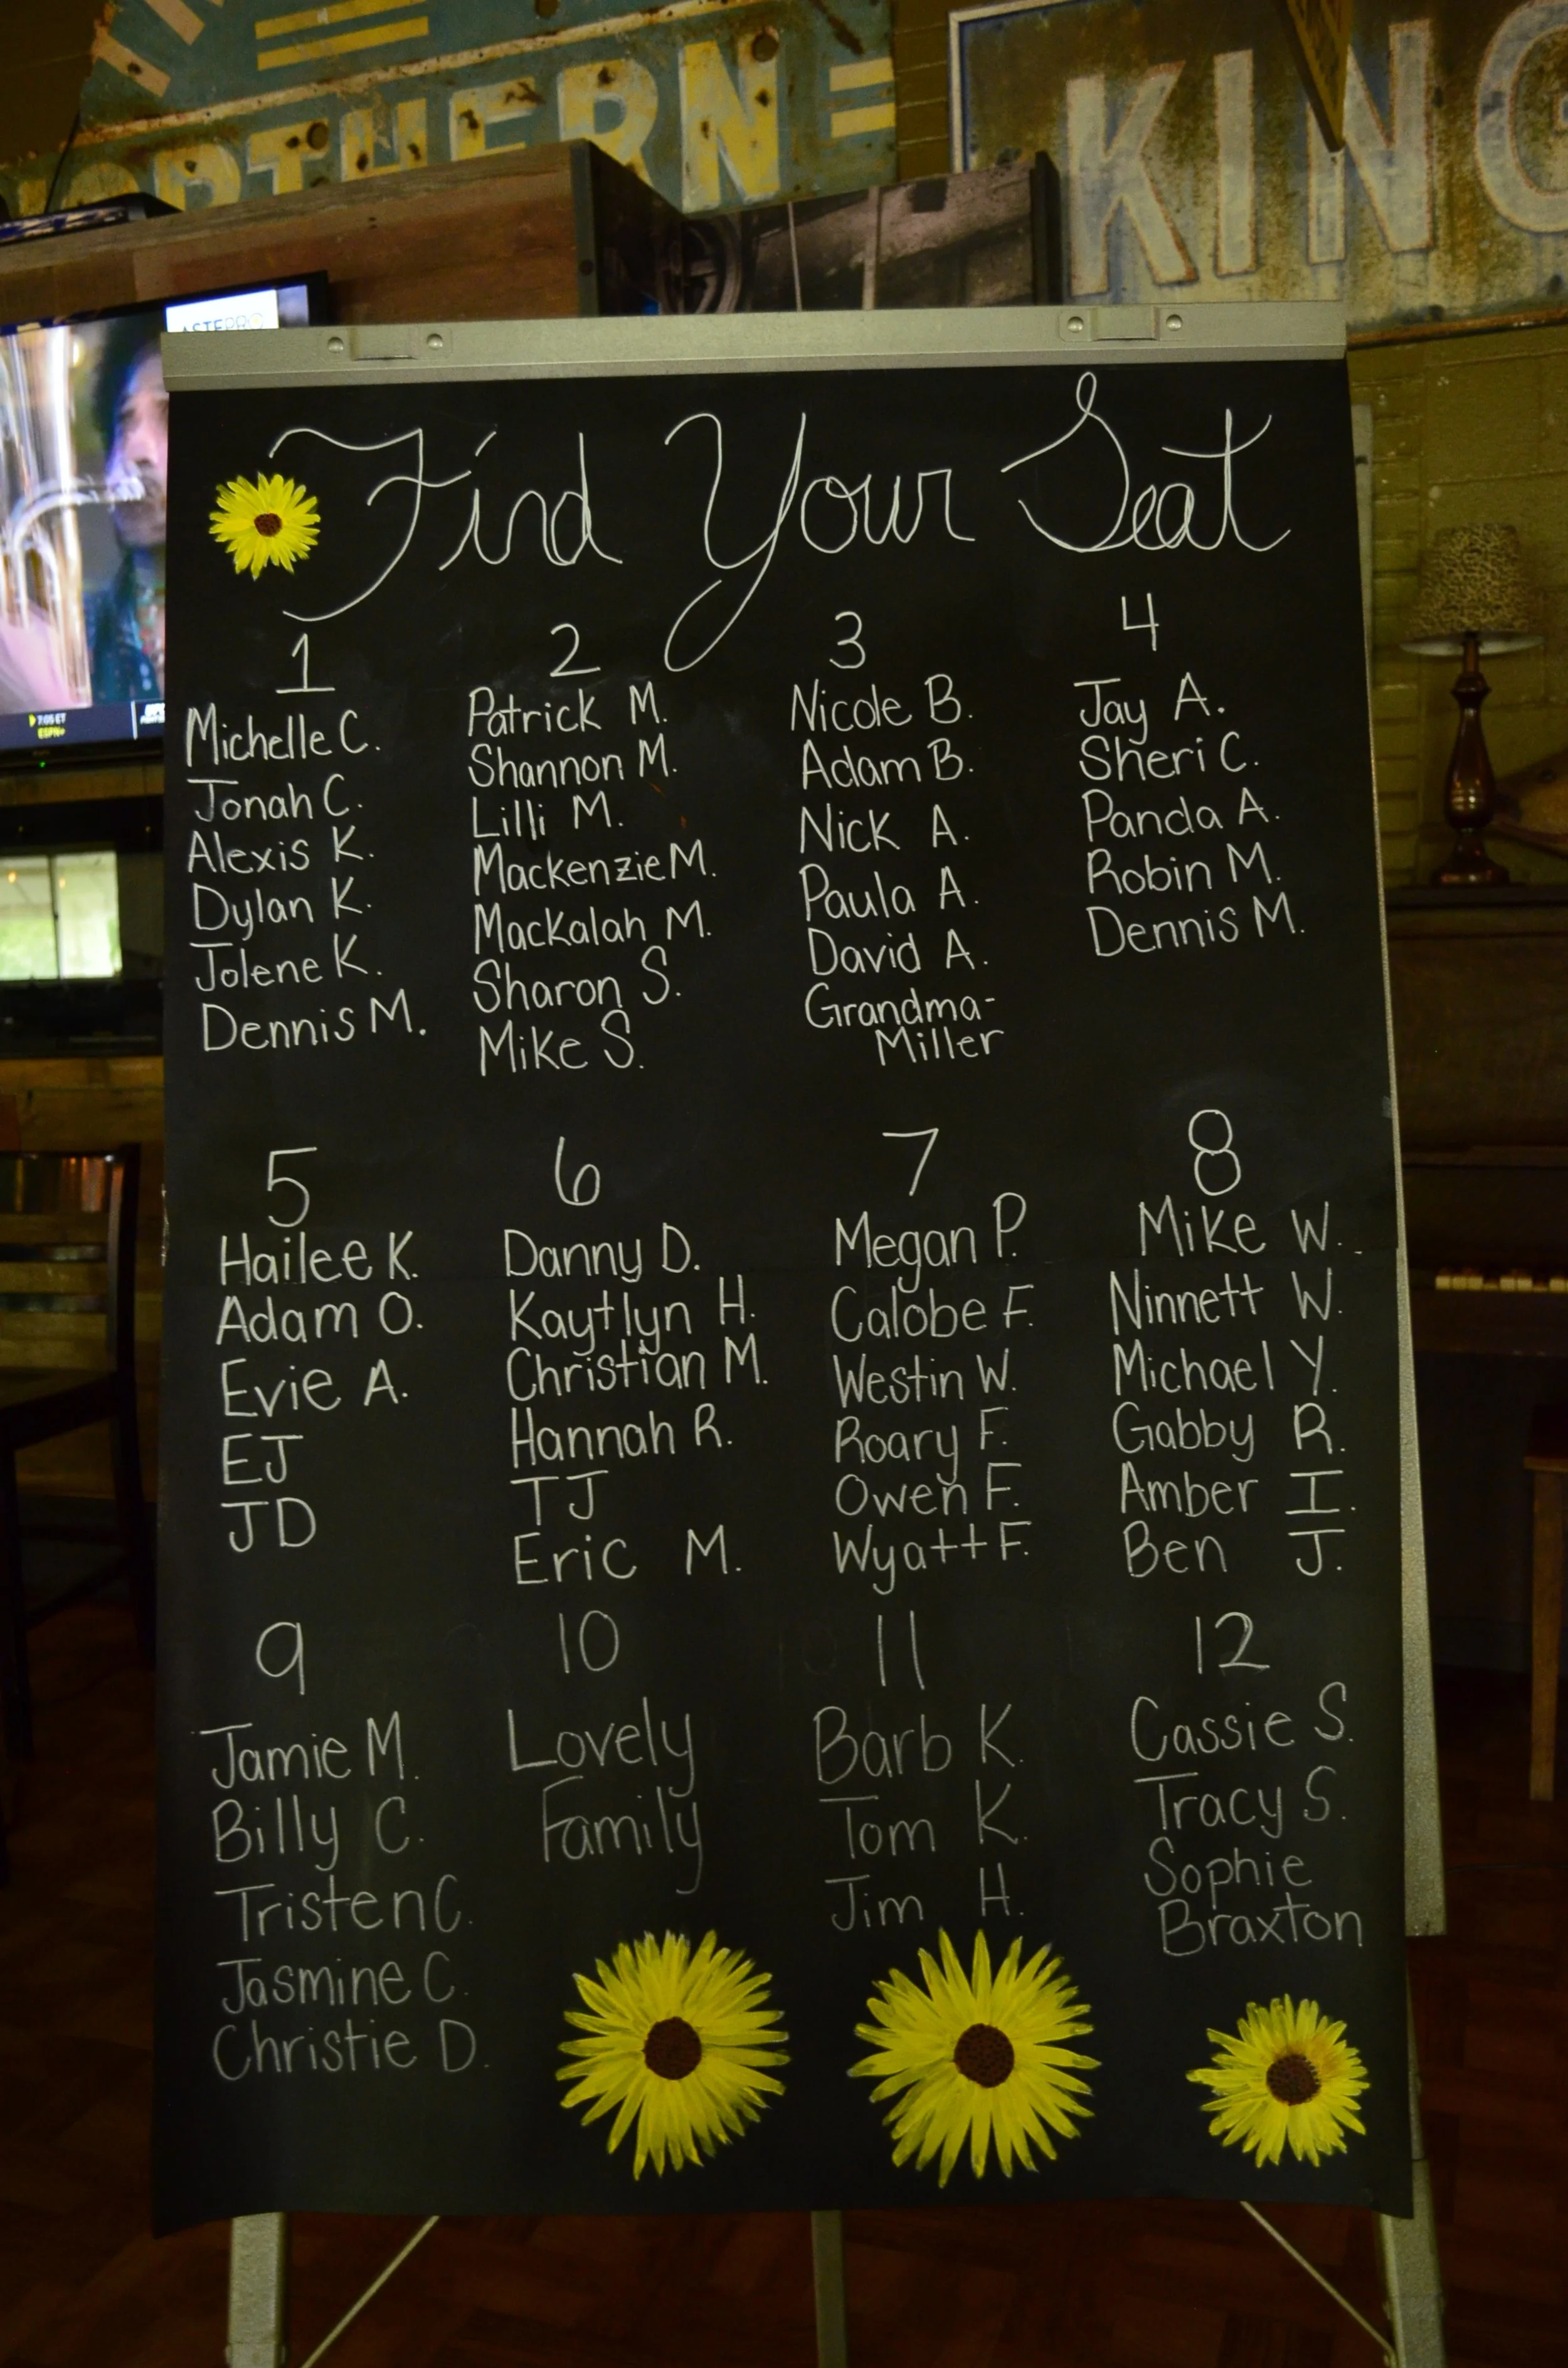 NORTHERN
KING
ASTEPRO
7:05 ET
ESPN+
Find Your Seat
1
Michelle C.
Jonah C.
Alexis K.
Dylan K.
Jolene K.
Dennis M.
2
Patrick M.
Shannon M.
Lilli M.
Mackenzie M.
Mackalah M.
Sharon S.
Mike S.
3
Nicole B.
Adam B.
Nick A.
Paula A.
David A.
Grandma-
Miller
4
Jay A.
Sheri C.
Panda A.
Robin M.
Dennis M.
5
Hailee K.
Adam O.
Evie A.
EJ
JD
6
Danny D.
Kaytlyn H.
Christian M.
Hannah R.
TJ
Eric M.
7
Megan P.
Calobe F.
Westin W.
Roary F.
Owen F.
Wyatt F.
8
Mike W.
Ninnett W.
Michael Y.
Gabby R.
Amber I.
Ben J.
9
Jamie M.
Billy C.
Tristen C.
Jasmine C.
Christie D.
10
Lovely
Family
11
Barb K.
Tom K.
Jim H.
12
Cassie S.
Tracy S.
Sophie
Braxton